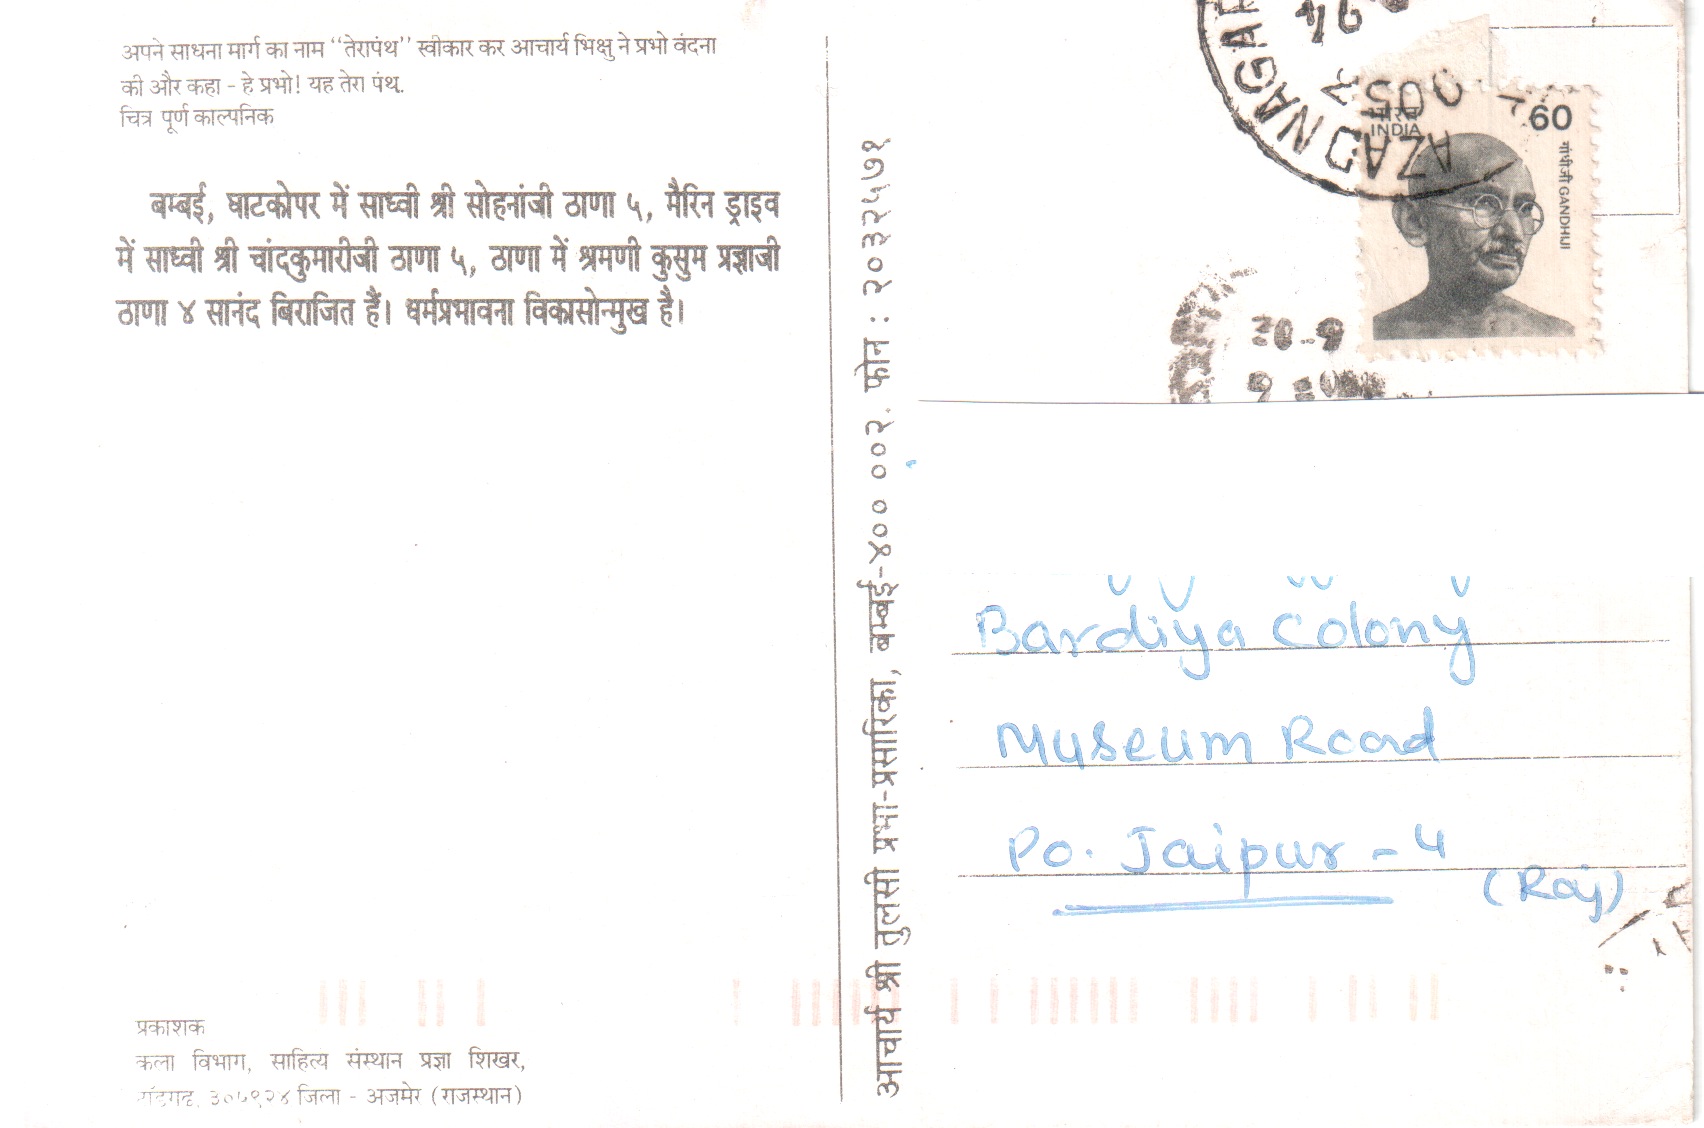 अपने साधना मार्ग का नाम "तेरापंथ" स्वीकार कर आचार्य भिक्षु ने प्रभो वंदना
की और कहा - हे प्रभो! यह तेरा पंथ.
चित्र पूर्ण काल्पनिक
बम्बई, घाटकोपर में साध्वी श्री सोहनांजी ठाणा ५, मैरिन ड्राइव
में साध्वी श्री चांदकुमारीजी ठाणा ५, ठाणा में श्रमणी कुसुम प्रज्ञाजी
ठाणा ४ सानंद बिराजित हैं। धर्मप्रभावना विकासोन्मुख है।
प्रकाशक
कला विभाग, साहित्य संस्थान प्रज्ञा शिखर,
जिला - अजमेर (राजस्थान)
आचार्य श्री तुलसी प्रभा-प्रसारिका, बम्बई-४०० ००२. फोन : २०३२५७१
AZAD NAGAR
भारत
INDIA
60
गांधीजी GANDHIJI
30-9
Bardiya Colony
Museum Road
Po. Jaipur - 4
(Raj)